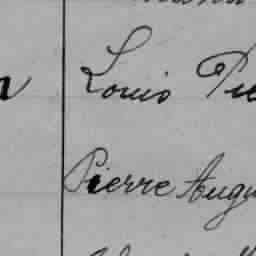 Louis Pie
Pierre Augu